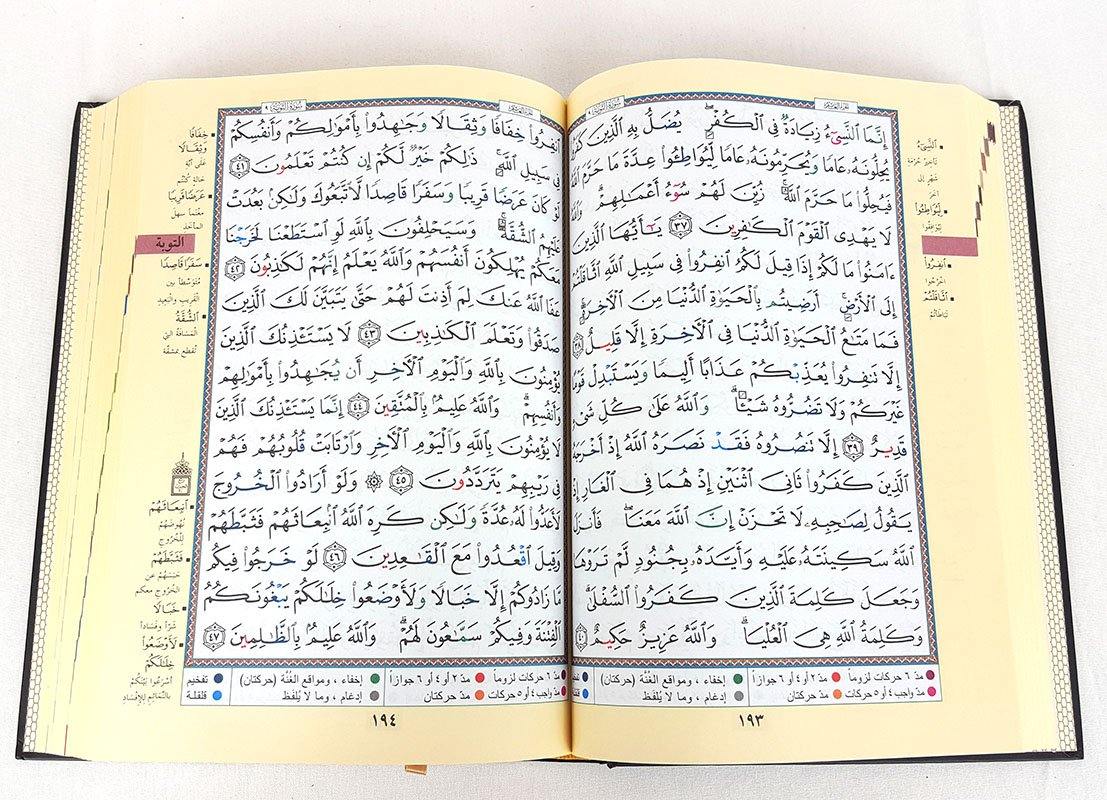 سورة التوبة ٩
الجزء العاشر
إِنَّمَا ٱلنَّسِىٓءُ زِيَادَةٌ فِى ٱلْكُفْرِ ۖ يُضَلُّ بِهِ ٱلَّذِينَ
يُحِلُّونَهُۥ عَامًا وَيُحَرِّمُونَهُۥ عَامًا لِّيُوَاطِـُٔوا۟ عِدَّةَ مَا حَرَّمَ ٱللَّهُ
فَيُحِلُّوا۟ مَا حَرَّمَ ٱللَّهُ ۚ زُيِّنَ لَهُمْ سُوٓءُ أَعْمَـٰلِهِمْ ۗ وَٱللَّهُ
لَا يَهْدِى ٱلْقَوْمَ ٱلْكَـٰفِرِينَ ٣٧ يَـٰٓأَيُّهَا ٱلَّذِينَ
ءَامَنُوا۟ مَا لَكُمْ إِذَا قِيلَ لَكُمُ ٱنفِرُوا۟ فِى سَبِيلِ ٱللَّهِ ٱثَّاقَلْتُمْ
إِلَى ٱلْأَرْضِ ۚ أَرَضِيتُم بِٱلْحَيَوٰةِ ٱلدُّنْيَا مِنَ ٱلْـَٔاخِرَةِ ۚ
فَمَا مَتَـٰعُ ٱلْحَيَوٰةِ ٱلدُّنْيَا فِى ٱلْـَٔاخِرَةِ إِلَّا قَلِيلٌ ٣٨
إِلَّا تَنفِرُوا۟ يُعَذِّبْكُمْ عَذَابًا أَلِيمًا وَيَسْتَبْدِلْ قَوْمًا
غَيْرَكُمْ وَلَا تَضُرُّوهُ شَيْـًٔا ۗ وَٱللَّهُ عَلَىٰ كُلِّ شَىْءٍ
قَدِيرٌ ٣٩ إِلَّا تَنصُرُوهُ فَقَدْ نَصَرَهُ ٱللَّهُ إِذْ أَخْرَجَهُ
ٱلَّذِينَ كَفَرُوا۟ ثَانِىَ ٱثْنَيْنِ إِذْ هُمَا فِى ٱلْغَارِ إِذْ
يَقُولُ لِصَـٰحِبِهِۦ لَا تَحْزَنْ إِنَّ ٱللَّهَ مَعَنَا ۖ فَأَنزَلَ
ٱللَّهُ سَكِينَتَهُۥ عَلَيْهِ وَأَيَّدَهُۥ بِجُنُودٍ لَّمْ تَرَوْهَا
وَجَعَلَ كَلِمَةَ ٱلَّذِينَ كَفَرُوا۟ ٱلسُّفْلَىٰ ۗ
وَكَلِمَةُ ٱللَّهِ هِىَ ٱلْعُلْيَا ۗ وَٱللَّهُ عَزِيزٌ حَكِيمٌ ٤٠
النَّسِيءُ
تأخير حُرْمة
شهر إلى
آخر
لِيُوَاطِئُوا
ليوافقوا
انفِرُوا
اخرجوا
اثَّاقَلْتُمْ
تباطأتم
مدّ ٦ حركات لزوماً مدّ ٢ أو ٤ أو ٦ جوازاً إخفاء ، ومواقع الغُنَّة (حركتان)
مدّ واجب ٤ أو ٥ حركات مدّ حركتان إدغام ، وما لا يُلفَظ
١٩٣
سورة التوبة ٩
الجزء العاشر
ٱنفِرُوا۟ خِفَافًا وَثِقَالًا وَجَـٰهِدُوا۟ بِأَمْوَٰلِكُمْ وَأَنفُسِكُمْ
فِى سَبِيلِ ٱللَّهِ ۚ ذَٰلِكُمْ خَيْرٌ لَّكُمْ إِن كُنتُمْ تَعْلَمُونَ ٤١
لَوْ كَانَ عَرَضًا قَرِيبًا وَسَفَرًا قَاصِدًا لَّٱتَّبَعُوكَ وَلَـٰكِنۢ بَعُدَتْ
عَلَيْهِمُ ٱلشُّقَّةُ ۚ وَسَيَحْلِفُونَ بِٱللَّهِ لَوِ ٱسْتَطَعْنَا لَخَرَجْنَا
مَعَكُمْ يُهْلِكُونَ أَنفُسَهُمْ وَٱللَّهُ يَعْلَمُ إِنَّهُمْ لَكَـٰذِبُونَ ٤٢
عَفَا ٱللَّهُ عَنكَ لِمَ أَذِنتَ لَهُمْ حَتَّىٰ يَتَبَيَّنَ لَكَ ٱلَّذِينَ
صَدَقُوا۟ وَتَعْلَمَ ٱلْكَـٰذِبِينَ ٤٣ لَا يَسْتَـْٔذِنُكَ ٱلَّذِينَ
يُؤْمِنُونَ بِٱللَّهِ وَٱلْيَوْمِ ٱلْـَٔاخِرِ أَن يُجَـٰهِدُوا۟ بِأَمْوَٰلِهِمْ
وَأَنفُسِهِمْ ۗ وَٱللَّهُ عَلِيمٌۢ بِٱلْمُتَّقِينَ ٤٤ إِنَّمَا يَسْتَـْٔذِنُكَ ٱلَّذِينَ
لَا يُؤْمِنُونَ بِٱللَّهِ وَٱلْيَوْمِ ٱلْـَٔاخِرِ وَٱرْتَابَتْ قُلُوبُهُمْ فَهُمْ
فِى رَيْبِهِمْ يَتَرَدَّدُونَ ٤٥ ۞ وَلَوْ أَرَادُوا۟ ٱلْخُرُوجَ
لَأَعَدُّوا۟ لَهُۥ عُدَّةً وَلَـٰكِن كَرِهَ ٱللَّهُ ٱنۢبِعَاثَهُمْ فَثَبَّطَهُمْ
وَقِيلَ ٱقْعُدُوا۟ مَعَ ٱلْقَـٰعِدِينَ ٤٦ لَوْ خَرَجُوا۟ فِيكُم
مَّا زَادُوكُمْ إِلَّا خَبَالًا وَلَأَوْضَعُوا۟ خِلَـٰلَكُمْ يَبْغُونَكُمُ
ٱلْفِتْنَةَ وَفِيكُمْ سَمَّـٰعُونَ لَهُمْ ۗ وَٱللَّهُ عَلِيمٌۢ بِٱلظَّـٰلِمِينَ ٤٧
خِفَافًا
وَثِقَالًا
على أيّة
حالة كنتم
عَرَضًا قَرِيبًا
مغنماً سهل
المأخذ
التوبة
سَفَرًا قَاصِدًا
متوسطاً بين
القريب والبعيد
الشُّقَّةُ
المسافة التي
تُقطع بمشقّة
انبِعَاثَهُمْ
نهوضهم
للخروج
فَثَبَّطَهُمْ
حبسهم عن
الخروج معكم
خَبَالًا
شرّاً وفساداً
لَأَوْضَعُوا
خِلَالَكُمْ
أسرعوا بينكم
بالنمائم للإفساد
مدّ ٦ حركات لزوماً مدّ ٢ أو ٤ أو ٦ جوازاً إخفاء ، ومواقع الغُنَّة (حركتان) تفخيم
مدّ واجب ٤ أو ٥ حركات مدّ حركتان إدغام ، وما لا يُلفَظ قلقلة
١٩٤